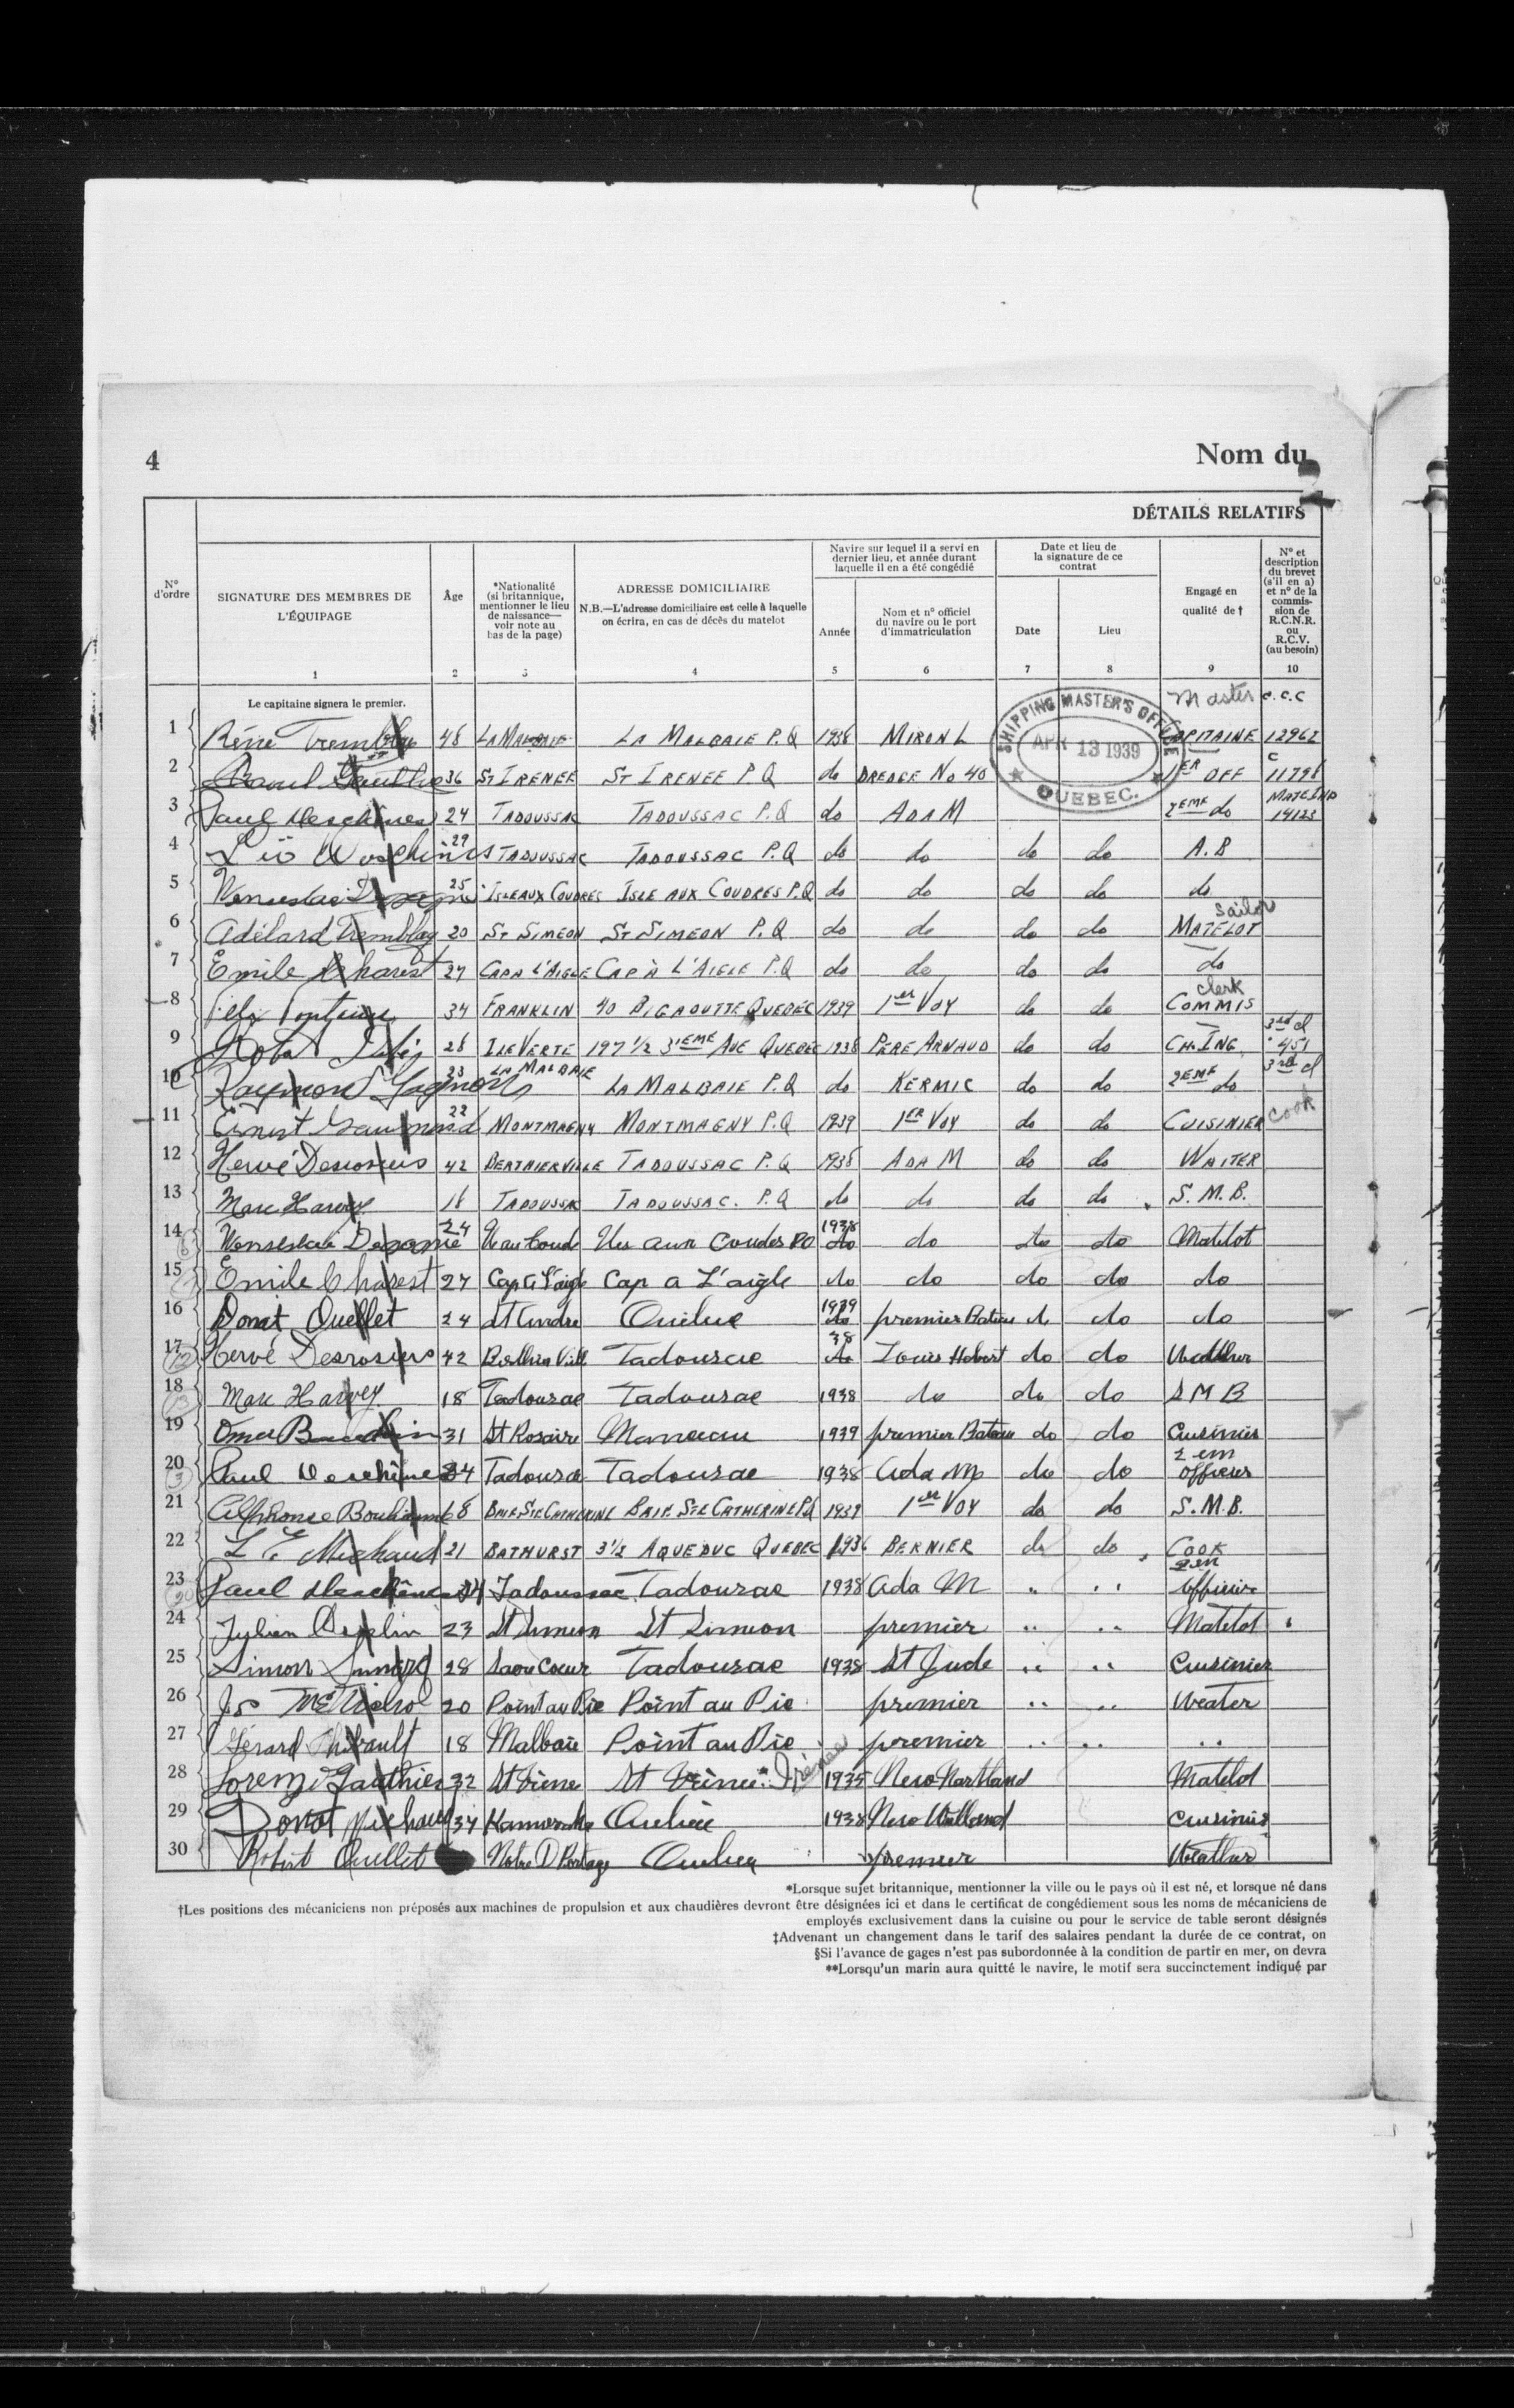 4 Nom du
DÉTAILS RELATIFS
N° d'ordre
SIGNATURE DES MEMBRES DE L'ÉQUIPAGE
Âge
*Nationalité (si britannique, mentionner le lieu de naissance—voir note au bas de la page)
ADRESSE DOMICILIAIRE
N.B.—L'adresse domiciliaire est celle à laquelle on écrira, en cas de décès du matelot
Navire sur lequel il a servi en dernier lieu, et année durant laquelle il en a été congédié
Année
Nom et n° officiel du navire ou le port d'immatriculation
Date et lieu de la signature de ce contrat
Date
Lieu
Engagé en qualité de †
N° et description du brevet (s'il en a) et n° de la commission de R.C.N.R. ou R.C.V. (au besoin)
1 2 3 4 5 6 7 8 9 10
Le capitaine signera le premier.
SHIPPING MASTER'S OFFICE
APR 13 1939
QUEBEC.
Master C.C.C
1 Réné Tremblay 48 LA MALBAIE LA MALBAIE P.Q 1938 MIRON L CAPITAINE 12962
2 36 ST IRENEE ST IRENEE P.Q do DREDGE No 40 1ER OFF C 11798
3 Paul Deschênes 24 TADOUSSAC TADOUSSAC P.Q do ADA M 2EME do 14123
4 Léo Deschênes 29 TADOUSSAC TADOUSSAC P.Q do do do do A.B
5 25 ISLE AUX COUDRES ISLE AUX COUDRES P.Q do do do do do
6 Adélard Tremblay 20 ST SIMEON ST SIMEON P.Q do do do do MATELOT Sailor
7 Emile Charest 27 CAP À L'AIGLE CAP À L'AIGLE P.Q do do do do do
8 34 FRANKLIN 40 BIGAOUTTE QUEBEC 1939 1er VOY do do COMMIS clerk
9 28 ILE VERTE 197 1/2 3IEME AVE QUEBEC 1938 PÈRE ARNAUD do do CH. ING. 3rd cl 451
10 23 LA MALBAIE LA MALBAIE P.Q do KERMIC do do 2EME do 3rd cl
11 Ernest 22 MONTMAGNY MONTMAGNY P.Q 1939 1ER VOY do do CUISINIER Cook
12 Hervé Desrosiers 42 BERTHIERVILLE TADOUSSAC P.Q 1938 ADA M do do WAITER
13 Marc Harvey 18 TADOUSSAC TADOUSSAC. P.Q do do do do S.M.B.
14 24 1938 do do do do Matelot
15 Emile Charest 27 Cap a L'aigle Cap a L'aigle do do do do do
16 Donat Ouellet 24 St Andre 1939 do premier Bateau do do do
17 12 Hervé Desrosiers 42 Tadousac 38 do Louis Hebert do do
18 13 Marc Harvey 18 Tadousac Tadousac 1938 do do do S M B
19 Omer 31 St Rosaire 1939 premier Bateau do do Cuisinier
20 3 Paul Deschênes 24 Tadousac Tadousac 1938 Ada M do do 2 em officier
21 Alphonse 68 BAIE STE CATHERINE BAIE STE CATHERINE P.Q 1939 1er VOY do do S.M.B.
22 L E Michaud 21 BATHURST 3 1/2 AQUEDUC QUEBEC 1936 BERNIER do do COOK
23 20 Paul Deschênes 24 Tadoussac Tadousac 1938 Ada M " " 2 em officier
24 Julien 23 St Simeon St Simeon premier " " Matelot
25 Simon 28 Sacré Coeur Tadousac 1938 St Jude " " Cuisinier
26 20 Point au Pic Point au Pic premier " " Weater
27 Gérard Thibault 18 Malbaie Point au Pic premier " " "
28 Lorenzo Gauthier 32 St Irenee 1935 New Northland Matelot
29 Donat Michaud 34 Kamouraska 1938 Cuisinier
30 Robert Ouellet Notre D Portage premier
*Lorsque sujet britannique, mentionner la ville ou le pays où il est né, et lorsque né dans
†Les positions des mécaniciens non préposés aux machines de propulsion et aux chaudières devront être désignées ici et dans le certificat de congédiement sous les noms de mécaniciens de
employés exclusivement dans la cuisine ou pour le service de table seront désignés
‡Advenant un changement dans le tarif des salaires pendant la durée de ce contrat, on
§Si l'avance de gages n'est pas subordonnée à la condition de partir en mer, on devra
**Lorsqu'un marin aura quitté le navire, le motif sera succinctement indiqué par